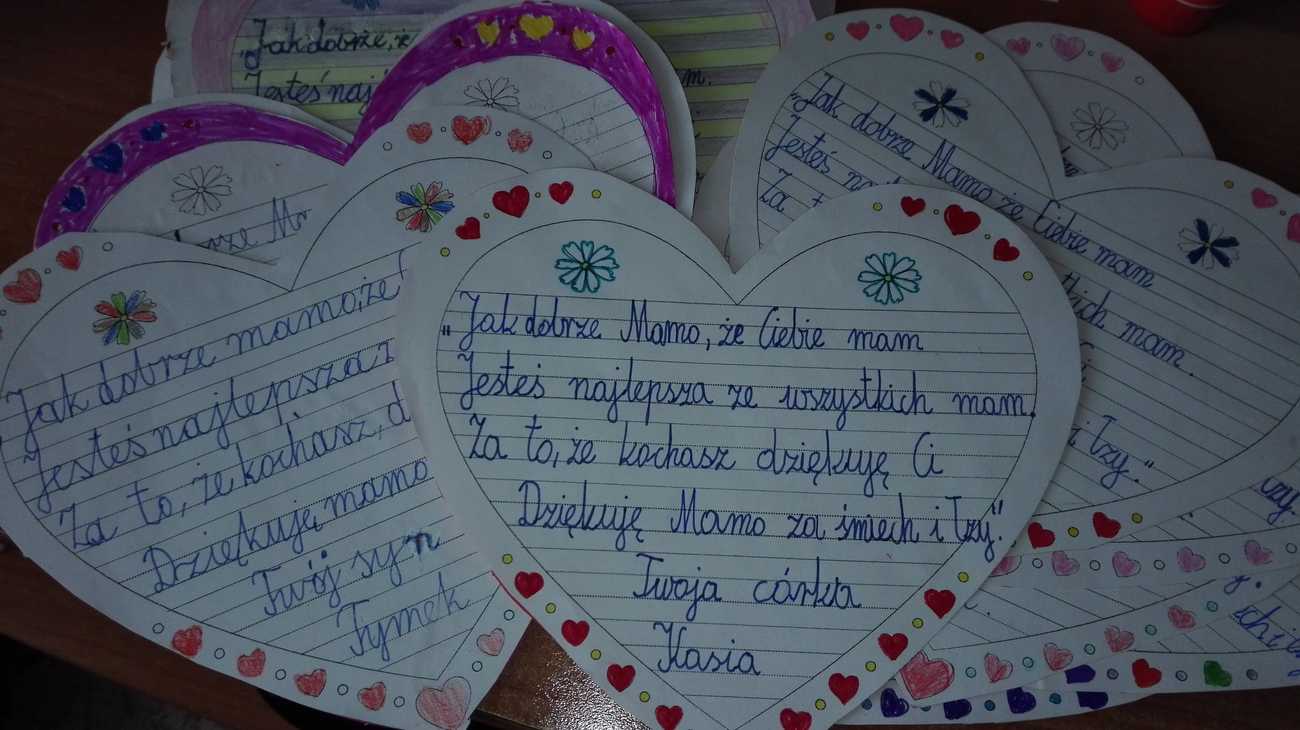 "Jak dobrze, ż
Jesteś naj
m.
"Jak dobrze Mamo że Ciebie mam
Jesteś na
Za t
tkich mam.
i łzy."
brze Ma
Jak dobrze mamo, że
Jesteś najlepsza z
Za to, że kochasz, d
Dziękuję mamo
Twój syn
Tymek
„Jak dobrze Mamo, że Ciebie mam
Jesteś najlepsza ze wszystkich mam.
Za to, że kochasz dziękuję Ci
Dziękuję Mamo za śmiech i łzy."
Twoja córka
Kasia